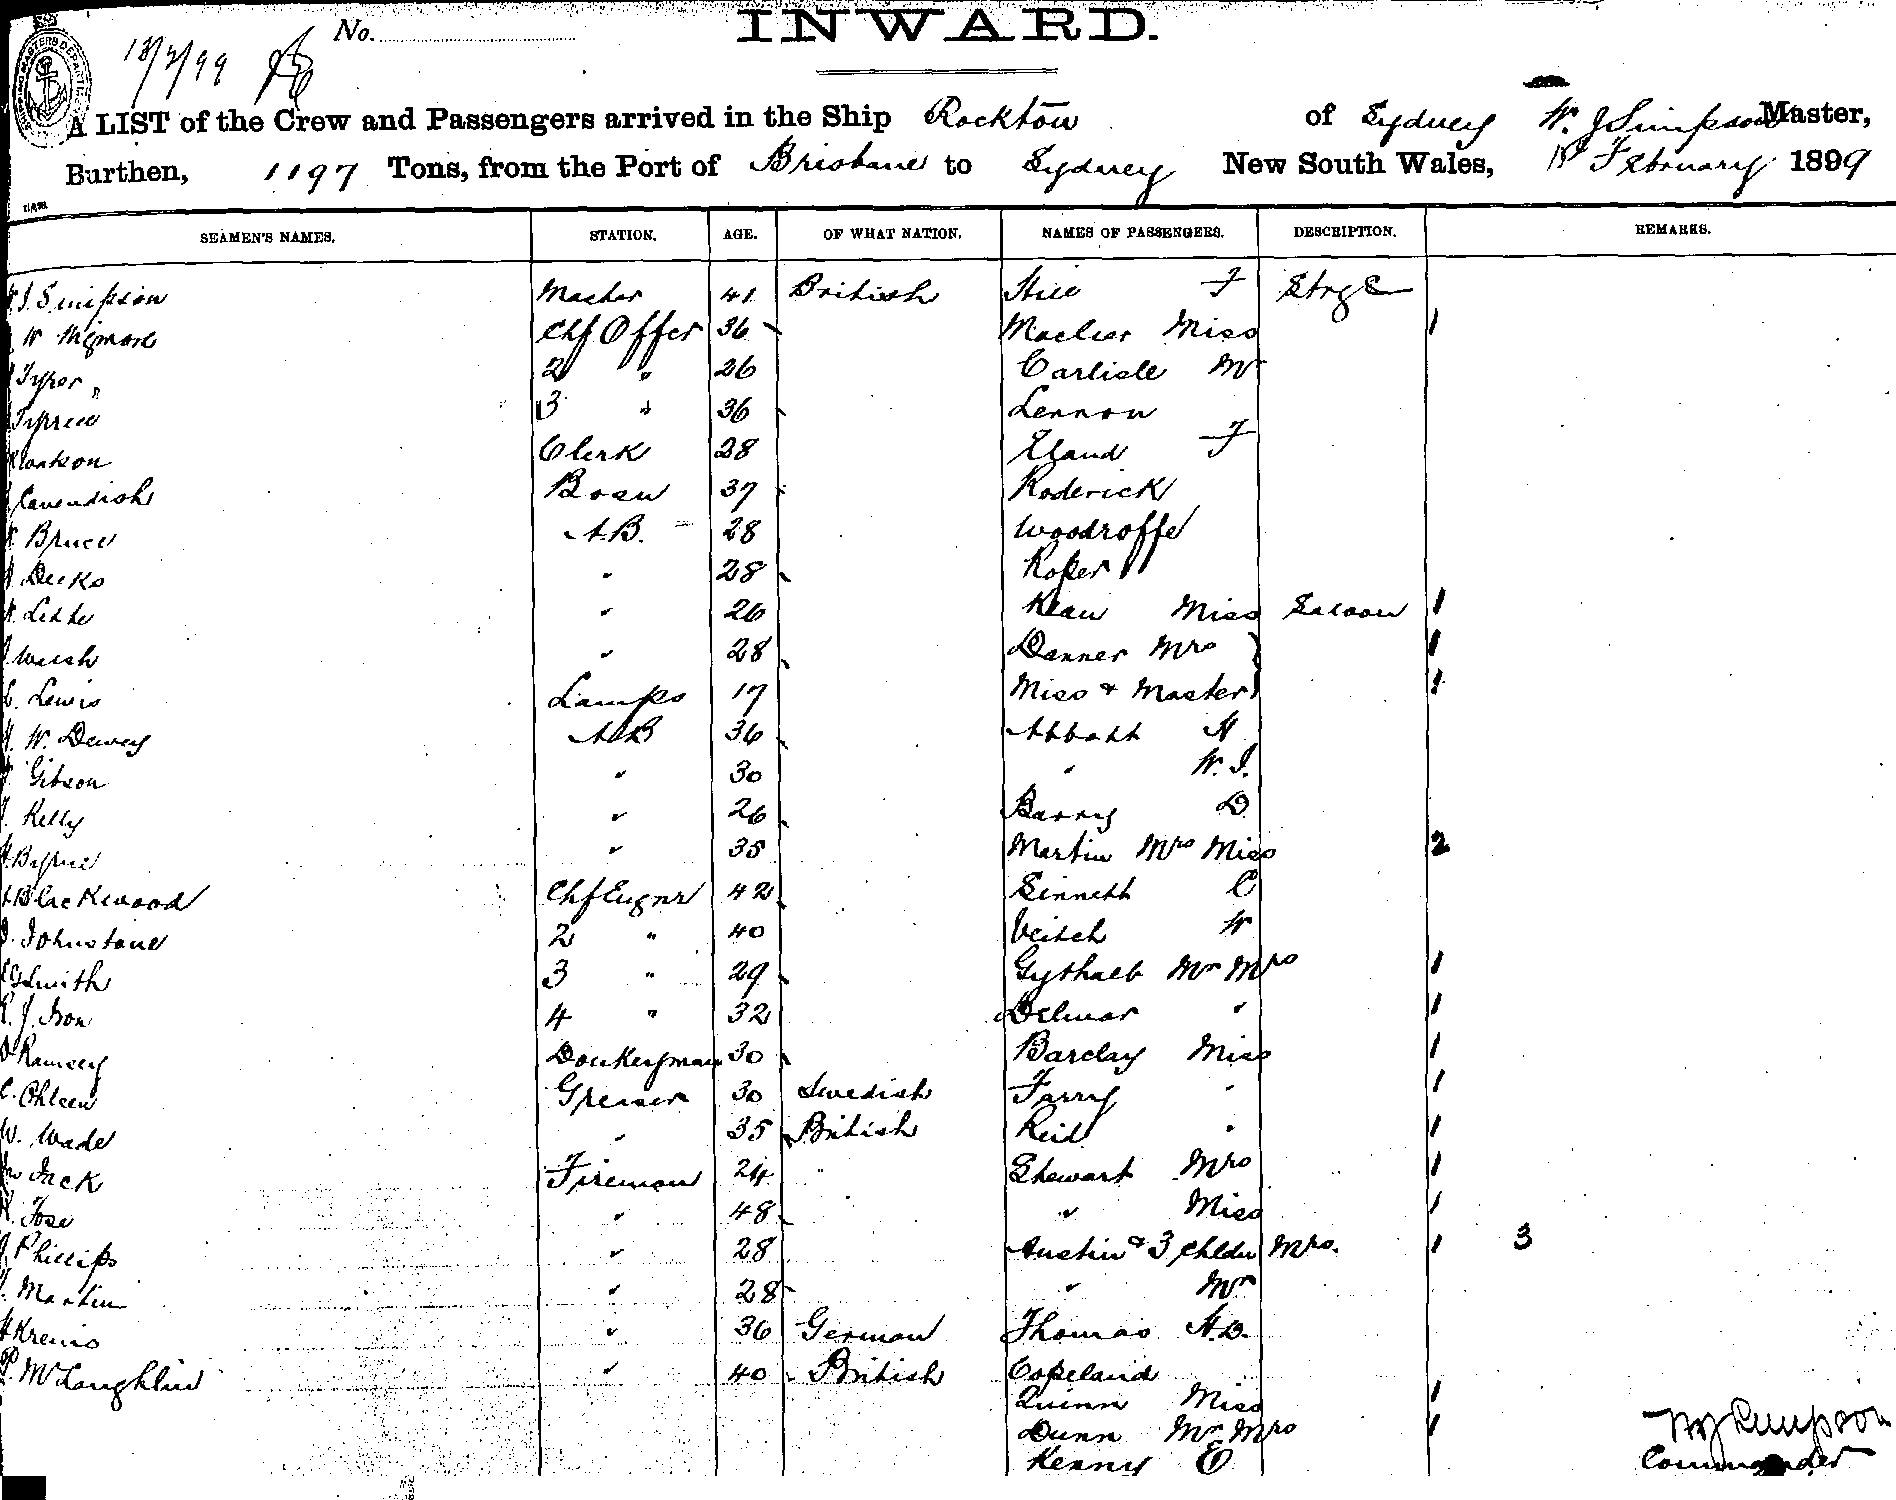 No.
INWARD.
18/2/99
A LIST of the Crew and Passengers arrived in the Ship Rockton of Sydney W. J Simpson Master,
Burthen, 1197 Tons, from the Port of Brisbane to Sydney New South Wales, 18 February 1899
SEAMEN'S NAMES. STATION. AGE. OF WHAT NATION. NAMES OF PASSENGERS. DESCRIPTION. REMARKS.
J. Simpson Master 41 British Hill F Strge
W Chf Offer 36 Miss 1
2 " 26 Carlisle Mr
3 " 36 Lennon
Clerk 28 Eland F
Cavendish Bosn 37 Roderick
Bruce A.B. 28 Woodroffe
Deeks " 28 Roper
" 26 Kean Miss Saloon 1
Walsh " 28 Danner Mrs 1
C. Lewis Lamps 17 Miss & Master 1
W. Dewey A.B 36 Abbott H
Gibson " 30 " W. J.
Kelly " 26 Barry D
Byrne " 35 Martin Mrs Miss 2
Blackwood Chf Engnr 42 Sinnett C
Johnstone 2 " 40 Veitch W
Smith 3 " 29 Mr Mrs 1
J. Ison 4 " 32 Delmar " 1
Ramsey Donkeyman 30 Barclay Miss 1
C. Ohlsen Greaser 30 Swedish Farry " 1
W. Wade " 35 British Reid " 1
Jack Fireman 24 " Stewart Mrs 1
Tose " 48 " Miss 1
Phillips " 28 Austin & 3 Chldn Mrs. 1 3
Martin " 28 " Mr
Krems " 36 German Thomas H.D.
P. McLoughlin " 40 British Copeland
Quinn Miss 1
Dunn Mr Mrs 1
Kenny E
W J Simpson
Commander